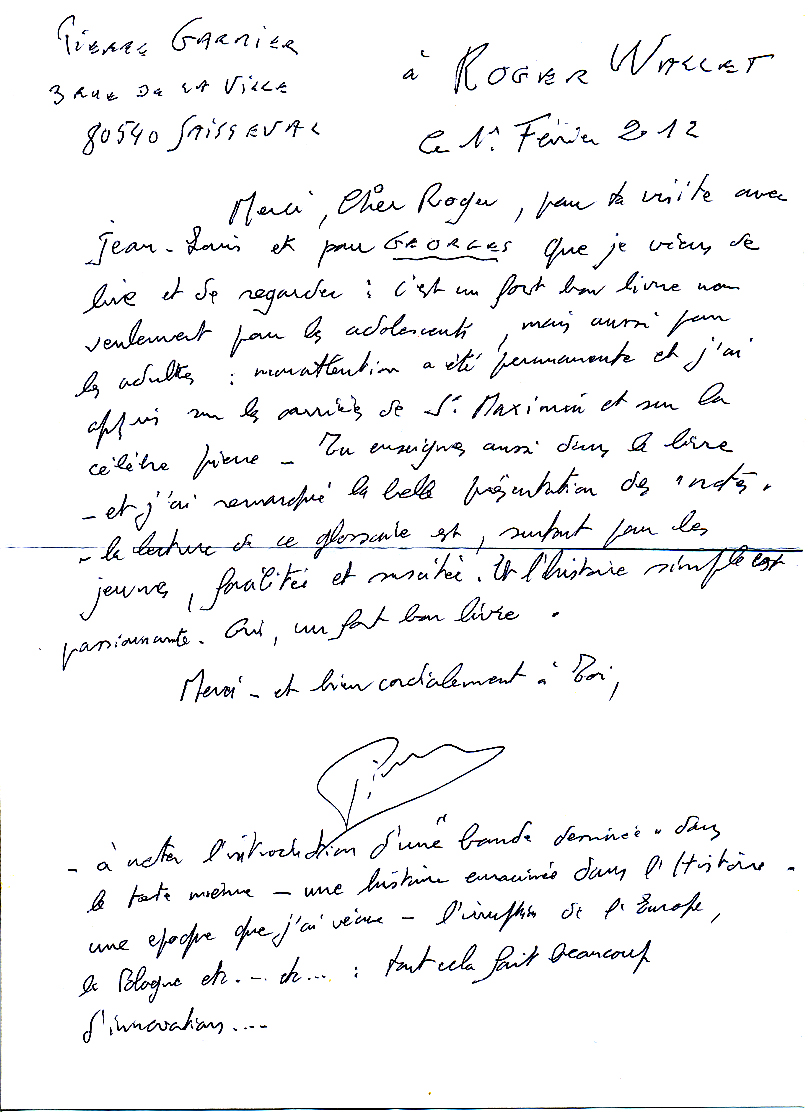 Pierre Garnier
3 rue de la Ville
80540 Saisseval
à Roger Wallet
le 1er Février 2012
Merci, Cher Roger, pour ta visite avec
Jean-Louis et pour GEORGES que je viens de
lire et de regarder : c'est un fort bon livre non
seulement pour les adolescents, mais aussi pour
les adultes : mon attention a été permanente et j'ai
appris sur les carrières de St Maximin et sur la
célèbre pierre - Tu enseignes aussi dans le livre
- et j'ai remarqué la belle présentation des "notes"
- la lecture de ce glossaire est, surtout pour les
jeunes, facilitée et suscitée. Et l'histoire simple est
passionnante. Oui, un fort bon livre.
Merci - et bien cordialement à Toi,
Pierre
- à noter l'introduction d'une "bande dessinée" dans
le texte même - une histoire enracinée dans l'Histoire -
une époque que j'ai vécue - l'irruption de l'Europe,
la Pologne etc. - etc... : tout cela fait beaucoup
d'innovations....